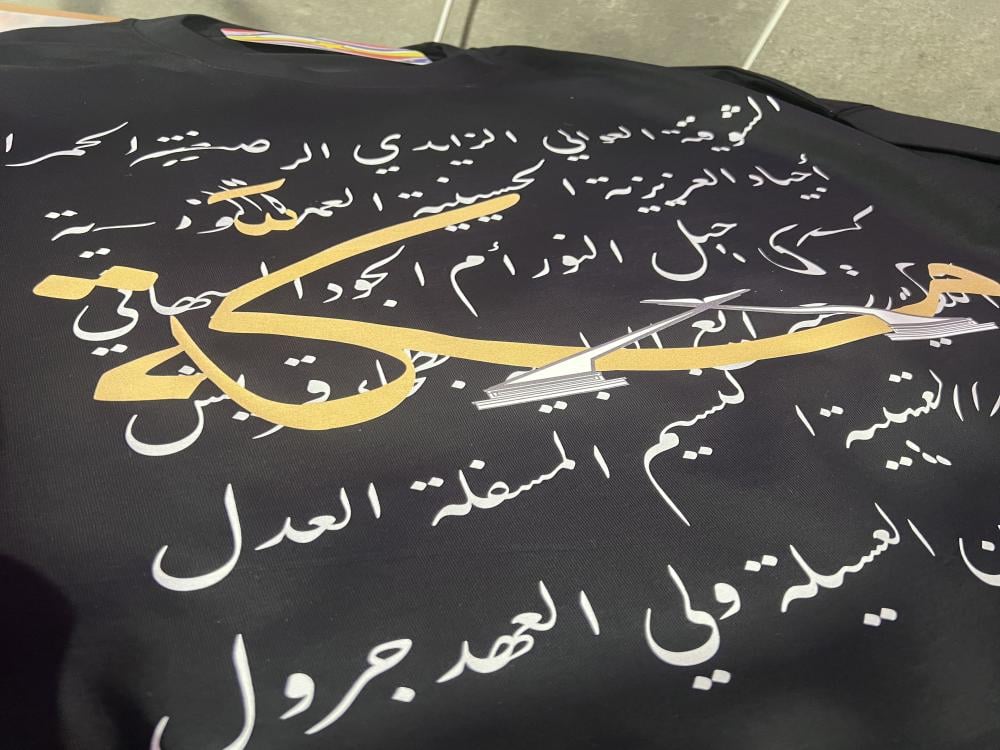 الشوقية العوالي الزايدي الرصيفة الحمرا
أجياد العزيزية الحسينية
كدي جبل النور أم الجود
مكة
بطحاء قريش
العتيبية النسيم المسفلة العدل
العسيلة ولي العهد جرول